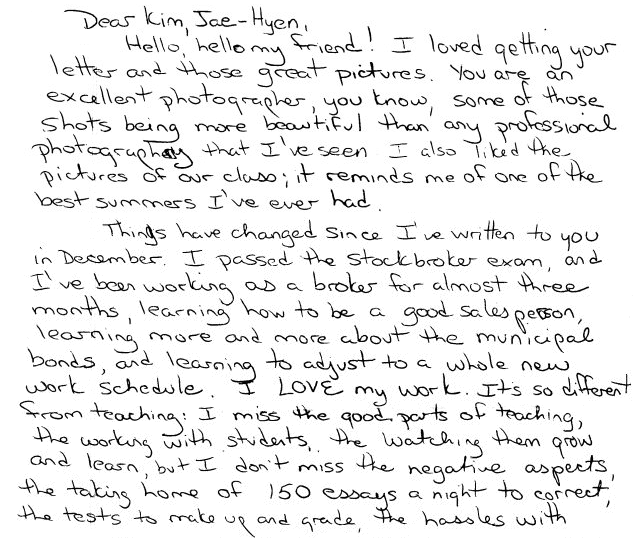 Dear Kim, Jae-Hyen,
Hello, hello my friend! I loved getting your
letter and those great pictures. You are an
excellent photographer, you know, some of those
shots being more beautiful than any professional
photography that I've seen. I also liked the
pictures of our class; it reminds me of one of the
best summers I've ever had.
Things have changed since I've written to you
in December. I passed the stockbroker exam, and
I've been working as a broker for almost three
months, learning how to be a good salesperson,
learning more and more about the municipal
bonds, and learning to adjust to a whole new
work schedule. I LOVE my work. It's so different
from teaching: I miss the good parts of teaching,
the working with students, the watching them grow
and learn, but I don't miss the negative aspects,
the taking home of 150 essays a night to correct,
the tests to make up and grade, the hassles with